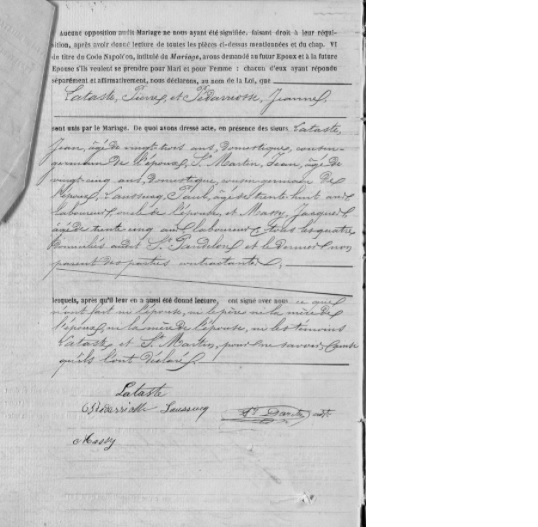 Aucune opposition audit Mariage ne nous ayant été signifiée, faisant droit à leur réqui-
sition, après avoir donné lecture de toutes les pièces ci-dessus mentionnées et du chap. VI
du titre du Code Napoléon, intitulé du Mariage, avons demandé au futur Epoux et à la future
Epouse s'ils veulent se prendre pour Mari et pour Femme : chacun d'eux ayant répondu
séparément et affirmativement, nous déclarons, au nom de la Loi, que
Lataste, Pierre, et Jeanne,
sont unis par le Mariage. De quoi avons dressé acte, en présence des sieurs Lataste,
Jean, âgé de vingt trois ans, domestique, cousin-
germain de l'époux, St Martin, Jean, âgé de
vingt cinq ans, domestique, cousin germain de
l'épouse, Laussucq, Paul, âgé de trente huit ans
laboureur, oncle de l'épouse, et Massy, Jacques
âgé de trente cinq ans laboureur, tous les quatre
domiciliés St Pandelon et le dernier non
parent des parties contractantes,
lesquels, après qu'il leur en a aussi été donné lecture, ont signé avec nous ce que
n'ont fait ni l'épouse, ni le père ni la mère de
l'époux, ni la mère de l'épouse, ni les témoins
Lataste et St Martin, pour ne savoir
qu'ils l'ont déclaré.
Lataste
Laussucq
Massy